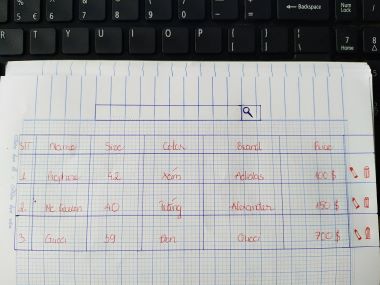 5 € 6 7 8 9 0 - = ← Backspace Num Lock
R T Y U I O P { [ } ] | \ 7 Home 8
STT Name Size Color Brand Price
1 42 Xám Adidas 100 $
2 Mc Queen 40 Trắng Alexander 150 $
3 Gucci 39 Đen Gucci 700 $